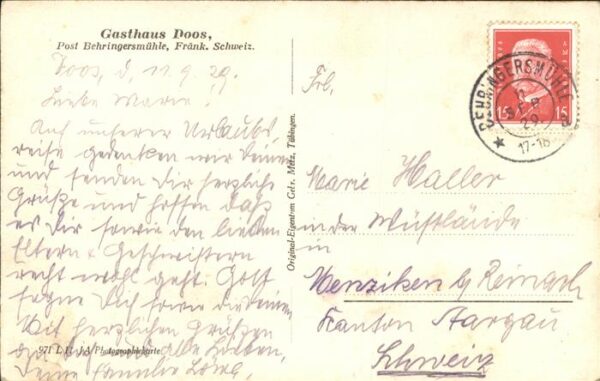 Gasthaus Doos,
Post Behringersmühle, Fränk. Schweiz.
Doos, d. 11.9.29.
Liebe Marie.
Auf unserer Urlaubs
reise gedenken wir Deiner
und senden Dir herzliche
Grüße und hoffen daß
es Dir sowie den lieben
Eltern & Geschwistern
recht wohl geht. Gott
segne Dich sowie die Deinen
Mit herzlichen Grüßen
an alle Lieben,
Deine Familie
971 L. Photographiekarte
Original-Eigentum Gebr. Metz, Tübingen.
Frl.
Marie Haller
in der Wüstlände
in
Menziken b/ Reinach
Kanton Aargau
Schweiz
15 15
BEHRINGERSMÜHLE
11
SEP
29
17-18
a